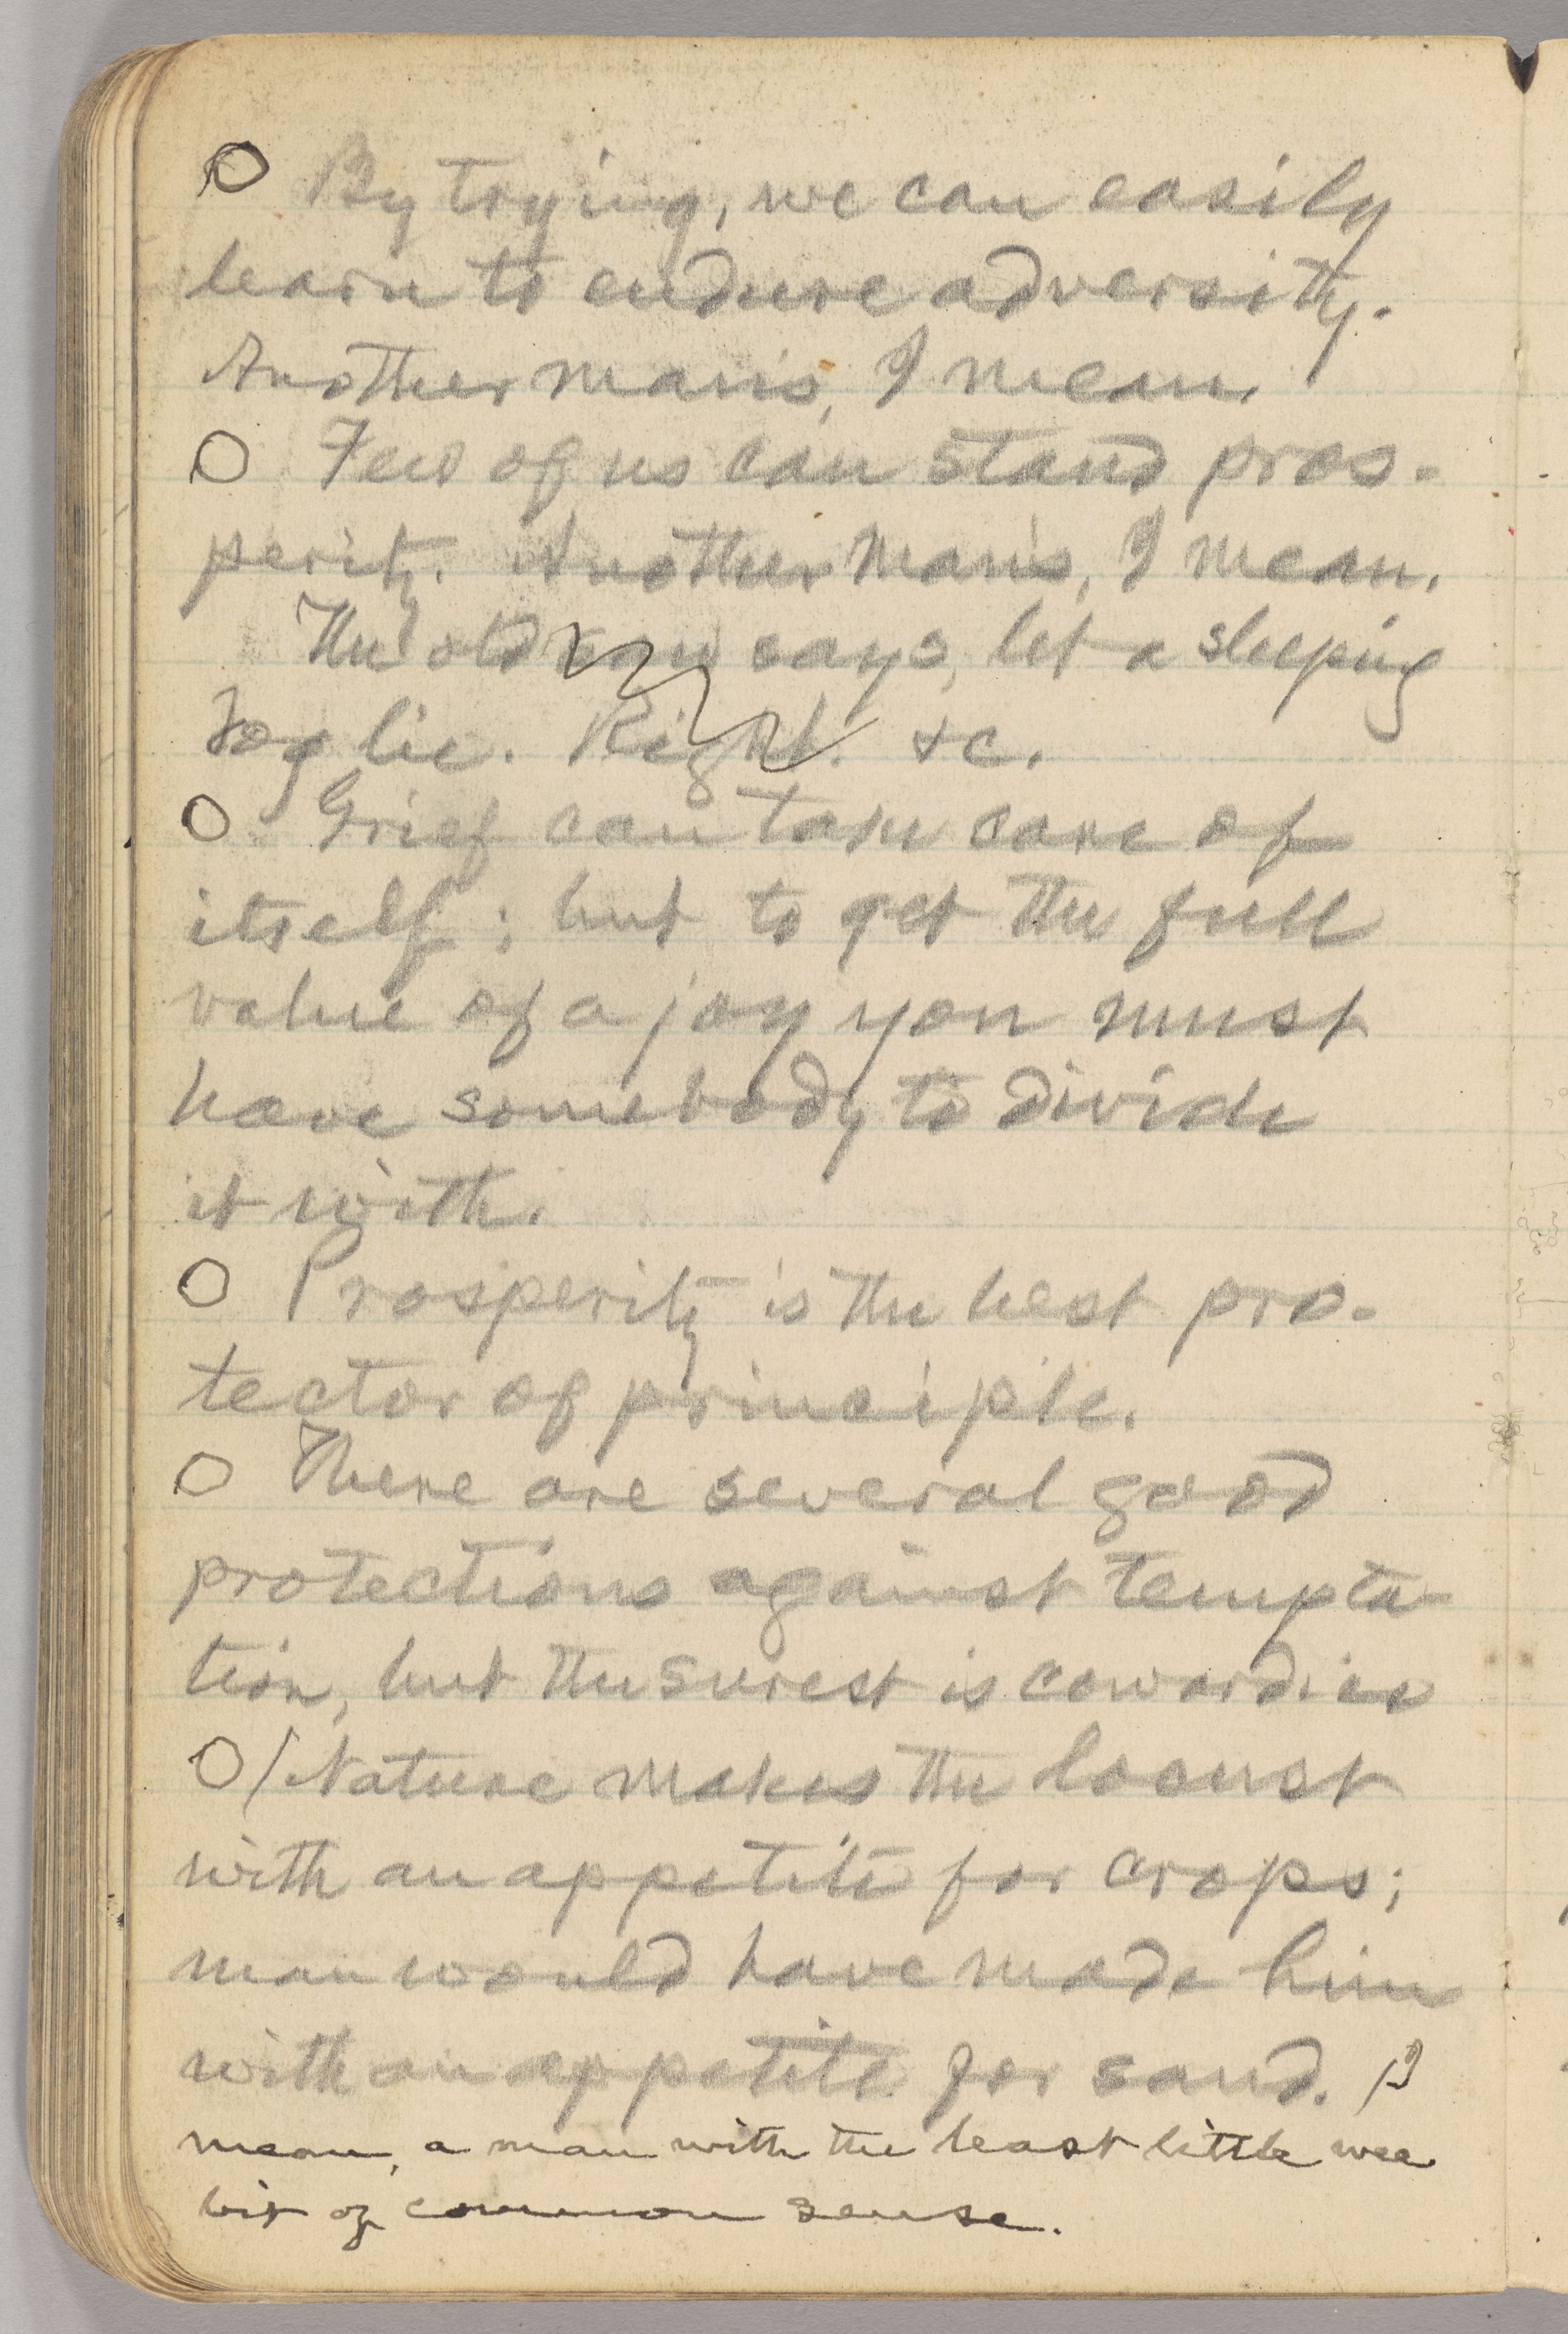 By trying, we can easily
learn to endure adversity.
Another man's, I mean.
Few of us can stand pros-
perity. Another man's, I mean.
The old saw says, let a sleeping
dog lie. Right. &c.
Grief can take care of
itself; but to get the full
value of a joy you must
have somebody to divide
it with.
Prosperity is the best pro-
tector of principle.
There are several good
protections against tempta-
tion, but the surest is cowardice
/Nature makes the locust
with an appetite for crops;
man would have made him
with an appetite for sand. /I
mean, a man with the least little wee
bit of common sense.